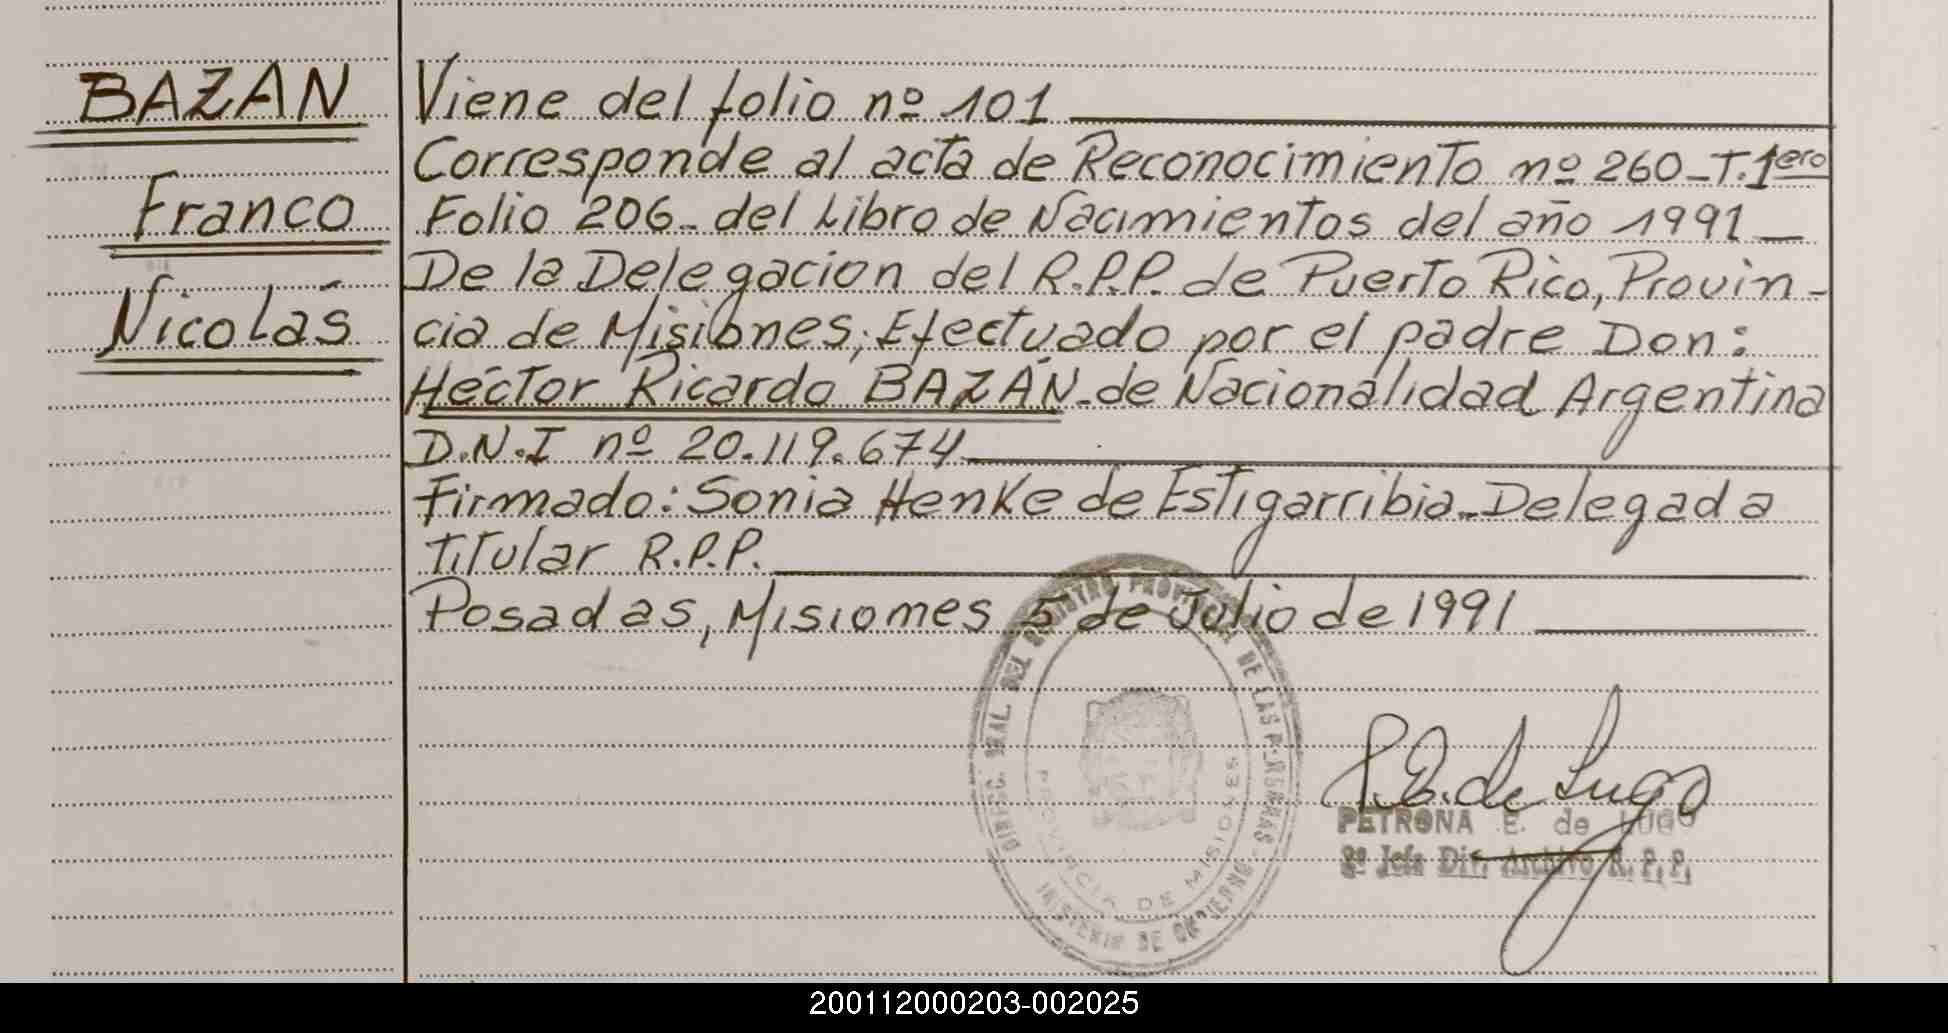 BAZAN
Franco
Nicolás
Viene del folio nº 101
Corresponde al acta de Reconocimiento nº 260_T.1ero
Folio 206_ del Libro de Nacimientos del año 1991_
De la Delegacion del R.P.P. de Puerto Rico, Provin-
cia de Misiones, Efectuado por el padre Don:
Héctor Ricardo BAZÁN_de Nacionalidad Argentina
D.N.I nº 20.119.674
Firmado: Sonia Henke de Estigarribia_Delegada
Titular R.P.P.
Posadas, Misiones 5 de Julio de 1991
DIRECC. GRAL. DEL REGISTRO PROVINCIAL DE LAS PERSONAS
PROVINCIA DE MISIONES
MINISTERIO DE GOBIERNO
P.E. de Lugo
PETRONA E. de LUGO
2º Jefa Dir. Archivo R.P.P.
200112000203-002025